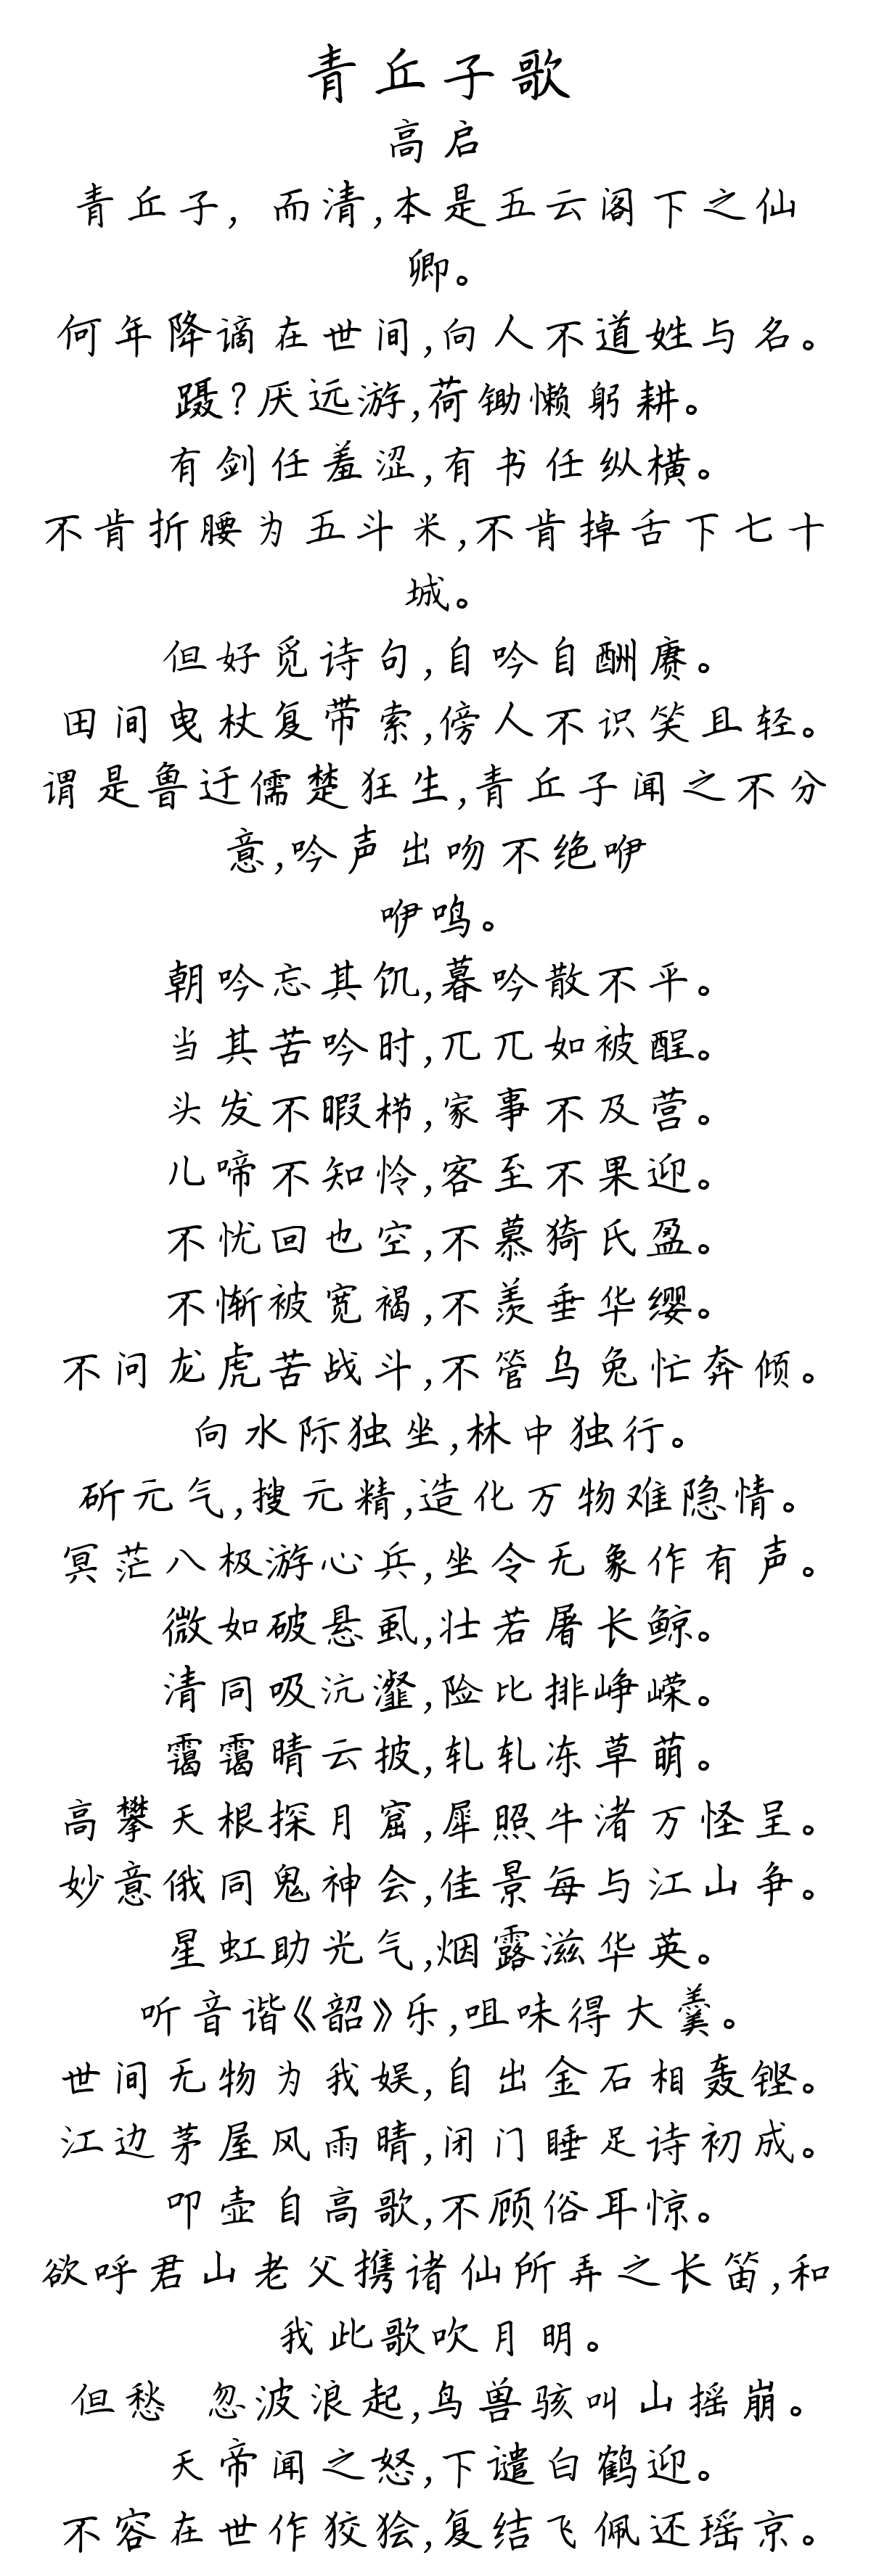 青丘子歌
高启
青丘子，而清,本是五云阁下之仙
卿。
何年降谪在世间,向人不道姓与名。
蹑?厌远游,荷锄懒躬耕。
有剑任羞涩,有书任纵横。
不肯折腰为五斗米,不肯掉舌下七十
城。
但好觅诗句,自吟自酬赓。
田间曳杖复带索,傍人不识笑且轻。
谓是鲁迂儒楚狂生,青丘子闻之不介
意,吟声出吻不绝咿
咿鸣。
朝吟忘其饥,暮吟散不平。
当其苦吟时,兀兀如被酲。
头发不暇栉,家事不及营。
儿啼不知怜,客至不果迎。
不忧回也空,不慕猗氏盈。
不惭被宽褐,不羡垂华缨。
不问龙虎苦战斗,不管乌兔忙奔倾。
向水际独坐,林中独行。
斫元气,搜元精,造化万物难隐情。
冥茫八极游心兵,坐令无象作有声。
微如破悬虱,壮若屠长鲸。
清同吸沆瀣,险比排峥嵘。
霭霭晴云披,轧轧冻草萌。
高攀天根探月窟,犀照牛渚万怪呈。
妙意俄同鬼神会,佳景每与江山争。
星虹助光气,烟露滋华英。
听音谐《韶》乐,咀味得大羹。
世间无物为我娱,自出金石相轰铿。
江边茅屋风雨晴,闭门睡足诗初成。
叩壶自高歌,不顾俗耳惊。
欲呼君山老父携诸仙所弄之长笛,和
我此歌吹月明。
但愁 忽波浪起,鸟兽骇叫山摇崩。
天帝闻之怒,下谴白鹤迎。
不容在世作狡狯,复结飞佩还瑶京。